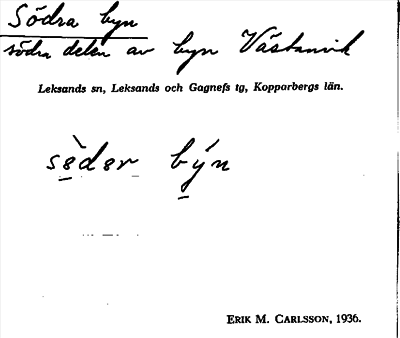 Södra byn
södra delen av byn Västanvik
Leksands sn, Leksands och Gagnefs tg, Kopparbergs län.
sə̀dər býn
ERIK M. CARLSSON, 1936.